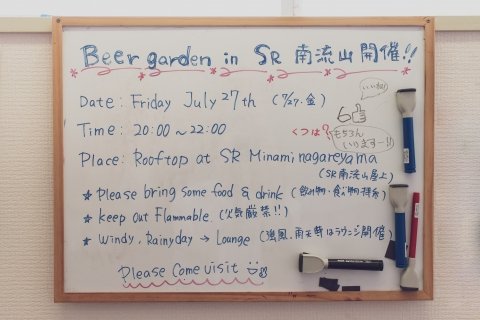 Beer garden in SR 南流山 開催!!
Date: Friday July 27th (7/27.金)
いいね!
6
Time: 20:00 ~ 22:00
くつは?
もちろん
いいますー!!
Place: Rooftop at SR Minaminagareyama
(SR南流山屋上)
★ Please bring some food & drink (飲み物・食べ物持参)
★ keep out Flammable. (火気厳禁!!)
★ Windy, Rainyday → Lounge (強風、雨天時はラウンジ開催)
Please Come visit